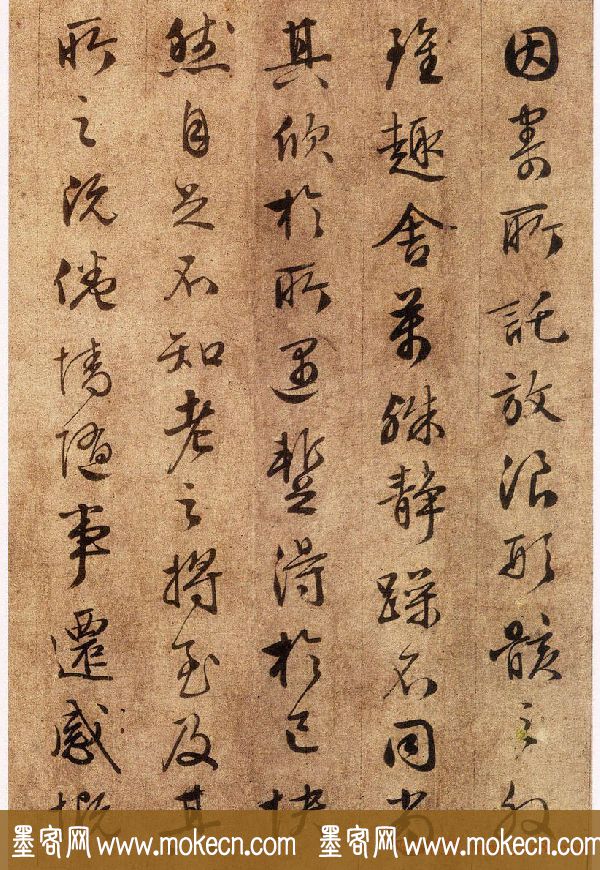 因寄所託放浪形骸之外
雖趣舍萬殊靜躁不同當
其欣於所遇暫得於己快
然自足不知老之將至及其
所之既倦情隨事遷感慨
墨客网 www.mokecn.com 墨客网 www.mokecn.com